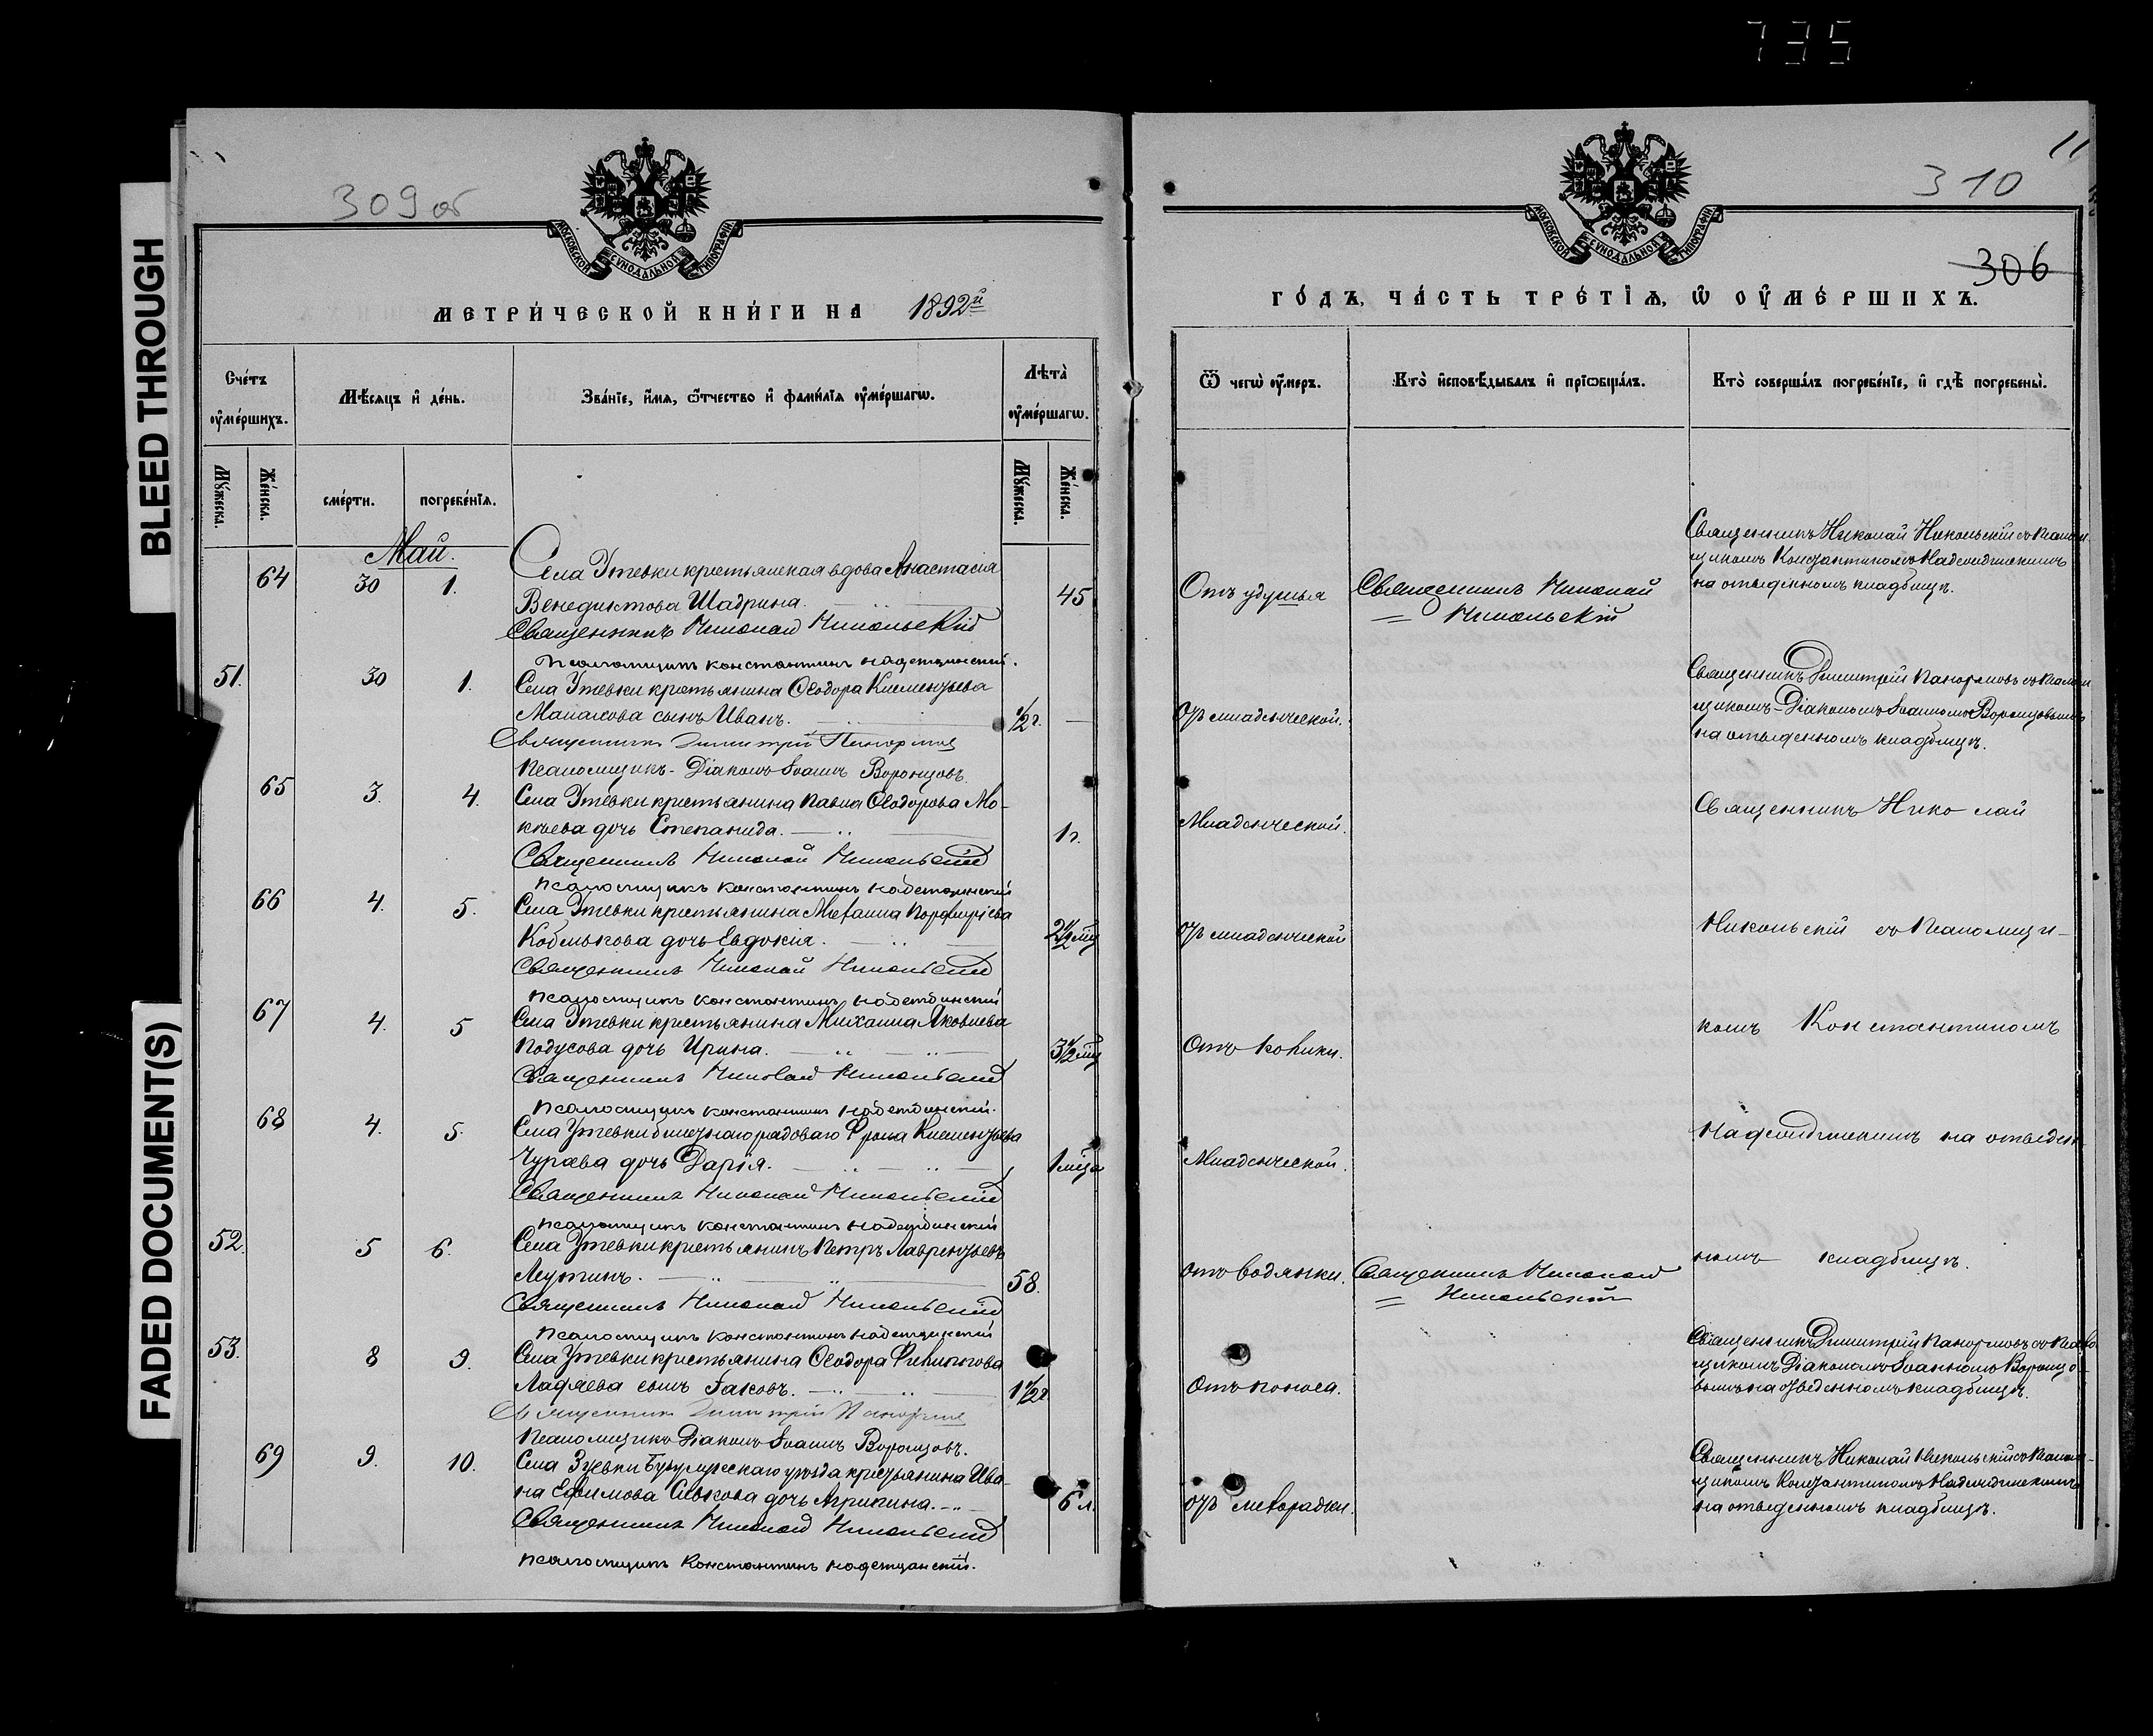 735
BLEED THROUGH
FADED DOCUMENT(S)
309об
МОСКОВСКОЙ СѴНОДАЛЬНОЙ ТИПОГРАФІИ
МЕТРИ́ЧЕСКОЙ КНИ́ГИ НА 1892й
Сче́тъ ѹ҆ме́ршихъ.
Мѣ́сяцъ и҆ де́нь.
Зва́нїе, и҆́мя, ѻ҆́тчество и҆ фами́лїя ѹ҆ме́ршагѡ.
Лѣ́та ѹ҆ме́ршагѡ.
Мѹ́жеска.
Же́нска.
сме́рти.
погребе́нїя.
Мѹ́жеска.
Же́нска.
Май.
64 30 1. Села Утевки крестьянская вдова Анастасія
Венедиктова Шадрина. 45
Священникъ Николай Никольскій
Псаломщикъ Константинъ Надеждинскій.
51. 30 1. Села Утевки крестьянина Ѳеодора Клементьева
сынъ Иванъ. 1/2 г.
Священникъ Димитрій Панормовъ
Псаломщикъ-Діаконъ Іоаннъ Воронцовъ.
65 3. 4. Села Утевки крестьянина Павла Ѳеодорова Мо-
кѣева дочь Степанида. 1 г.
Священникъ Николай Никольскій
Псаломщикъ Константинъ Надеждинскій
66 4. 5. Села Утевки крестьянина Михаила Порфирьева
Кобылькова дочь Евдокія. 2 1/2 мц
Священникъ Николай Никольскій
Псаломщикъ Константинъ Надеждинскій
67 4. 5 Села Утевки крестьянина Михаила Яковлева
Подусова дочь Ирина. 3 1/2 мц
Священникъ Николай Никольскій
Псаломщикъ Константинъ Надеждинскій.
68 4. 5. Села Утевки билетнаго рядоваго Фрола Клементьева
Чураева дочь Дарія. 1 мца
Священникъ Николай Никольскій
Псаломщикъ Константинъ Надеждинскій
52. 5 6. Села Утевки крестьянинъ Петръ Лаврентьевъ
58.
Священникъ Николай Никольскій
Псаломщикъ Константинъ Надеждинскій
53. 8 9. Села Утевки крестьянина Ѳеодора Филиппова
Ладяева сынъ Іаковъ. 1 1/2 г
Священникъ Димитрій Панормовъ
Псаломщикъ Діаконъ Іоаннъ Воронцовъ.
69 9. 10. Села Зуевки Бузулукскаго уѣзда крестьянина Ива-
на Ефимова Сивкова дочь Агрипина. 6 л.
Священникъ Николай Никольскій
Псаломщикъ Константинъ Надеждинскій.
11
310
306
МОСКОВСКОЙ СѴНОДАЛЬНОЙ ТИПОГРАФІИ
ГО́ДЪ, ЧА́СТЬ ТРЕ́ТЇѦ, Ѡ҆ ОУ҆МЕ́РШИХЪ.
Ѿ чегѡ̀ ѹ҆́меръ.
Кто̀ и҆сповѣ́дывалъ и҆ прїѡбща́лъ.
Кто̀ соверша́лъ погребе́нїе, и҆ гдѣ̀ погребены̀.
Отъ удушья
Священникъ Николай
Никольскій
Священникъ Николай Никольскій съ псалом
щикомъ Константиномъ Надеждинскимъ
на отведенномъ кладбищѣ.
Отъ младенческой.
Священникъ Димитрій Панормовъ съ псалом
щикомъ-Діакономъ Іоанномъ Воронцовымъ
на отведенномъ кладбищѣ.
Младенческой.
Священникъ Николай
Отъ младенческой
Никольскій съ псаломщи-
Отъ колики.
комъ Константиномъ
Младенческой.
Надеждинскимъ на отведен-
Отъ водянки.
Священникъ Николай
Никольскій
номъ кладбищѣ.
Отъ поноса.
Священникъ Димитрій Панормовъ съ псалом
щикомъ Діакономъ Іоанномъ Воронцо-
вымъ на отведенномъ кладбищѣ.
Отъ лихорадки.
Священникъ Николай Никольскій съ псалом-
щикомъ Константиномъ Надеждинскимъ
на отведенномъ кладбищѣ.